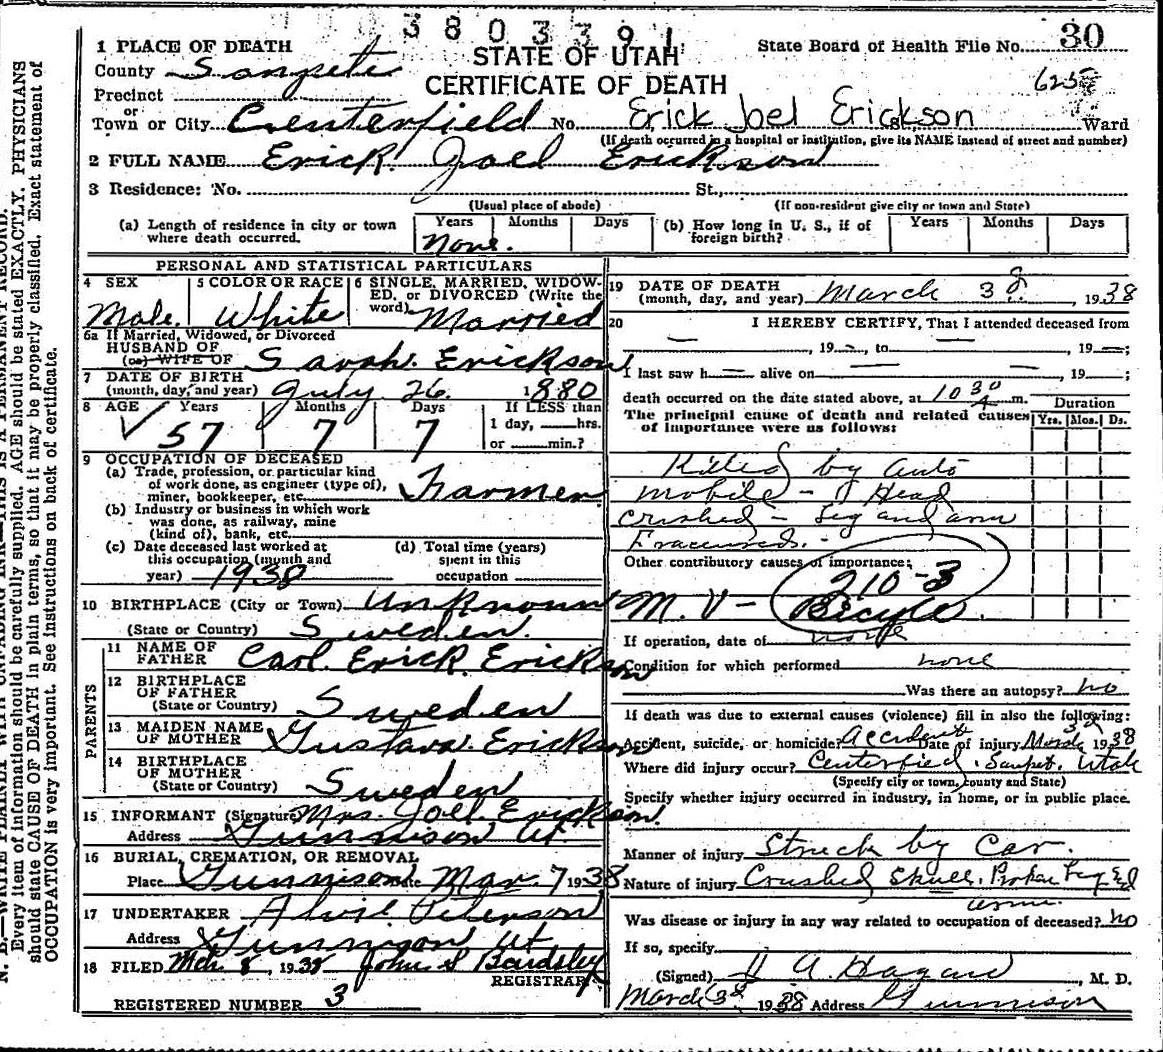 3803391
STATE OF UTAH
CERTIFICATE OF DEATH
State Board of Health File No. 30
625
1 PLACE OF DEATH
County Sanpete
Precinct
or
Town or City Centerfield No. Erick Joel Erickson Ward
(If death occurred in a hospital or institution, give its NAME instead of street and number)
2 FULL NAME Erick Joel Erickson
3 Residence: No. St.,
(Usual place of abode) (If non-resident give city or town and State)
(a) Length of residence in city or town where death occurred. Years Months Days
None.
(b) How long in U. S., if of foreign birth? Years Months Days
PERSONAL AND STATISTICAL PARTICULARS
4 SEX
Male.
5 COLOR OR RACE
White
6 SINGLE, MARRIED, WIDOW-
ED, or DIVORCED (Write the
word) Married
6a If Married, Widowed, or Divorced
HUSBAND OF
(or) WIFE OF Sarah. Erickson
7 DATE OF BIRTH
(month, day, and year) July 26. 1880
8 AGE Years Months Days If LESS than
1 day, hrs.
or min.?
57 7 7
9 OCCUPATION OF DECEASED
(a) Trade, profession, or particular kind
of work done, as engineer (type of),
miner, bookkeeper, etc. Farmer
(b) Industry or business in which work
was done, as railway, mine
(kind of), bank, etc.
(c) Date deceased last worked at
this occupation (month and
year) 1938
(d) Total time (years)
spent in this
occupation
10 BIRTHPLACE (City or Town) Unknown
(State or Country) Sweden.
PARENTS
11 NAME OF
FATHER Carl. Erick. Erickson
12 BIRTHPLACE
OF FATHER
(State or Country) Sweden
13 MAIDEN NAME
OF MOTHER Gustava. Erickson
14 BIRTHPLACE
OF MOTHER
(State or Country) Sweden
15 INFORMANT (Signature) Mrs. Joel Erickson.
Address Gunnison Ut.
16 BURIAL, CREMATION, OR REMOVAL
Place Gunnison Date Mar. 7 1938
17 UNDERTAKER Peterson
Address Gunnison Ut
18 FILED Mch. 8, 1938 John S Bardsley
REGISTRAR
REGISTERED NUMBER 3
19 DATE OF DEATH
(month, day, and year) March 3rd, 1938
20 I HEREBY CERTIFY, That I attended deceased from
, 19 , to , 19 ;
I last saw h alive on , 19 ;
death occurred on the date stated above, at m.
Duration
Yrs. Mos. Ds.
The principal cause of death and related causes
of importance were as follows:
Killed by auto
mobile - Head
crushed - Leg and arm
Fractured. -
Other contributory causes of importance:
210-3
M. V - Bicycle
If operation, date of none
Condition for which performed none
Was there an autopsy? no
If death was due to external causes (violence) fill in also the following:
Accident, suicide, or homicide? Accident Date of injury March 3rd 1938
Where did injury occur? Centerfield. Sanpete. Utah
(Specify city or town, county and State)
Specify whether injury occurred in industry, in home, or in public place.
Manner of injury Struck by Car.
Nature of injury Crushed Skull. Broken Leg and
arm.
Was disease or injury in any way related to occupation of deceased? no
If so, specify
(Signed) A. Hagan, M. D.
March 3rd 1938 Address Gunnison
Every item of information should be carefully supplied. AGE should be stated EXACTLY. PHYSICIANS
should state CAUSE OF DEATH in plain terms, so that it may be properly classified. Exact statement of
OCCUPATION is very important. See instructions on back of certificate.